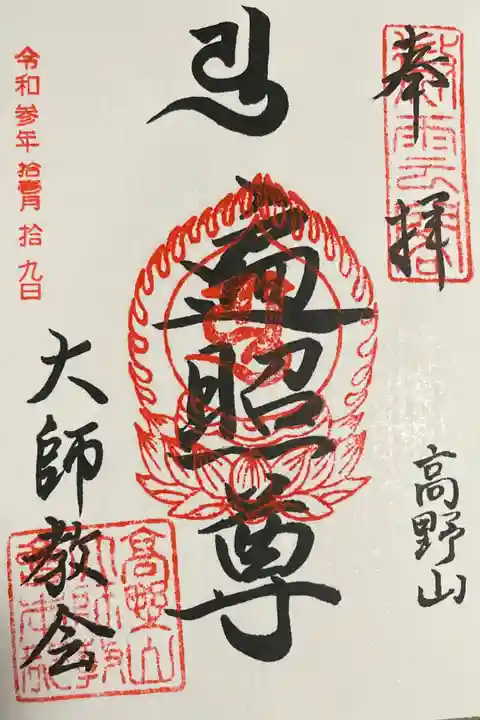 奉拝
高野山
遍照尊
大師教会
令和参年拾壹月拾九日
高野山